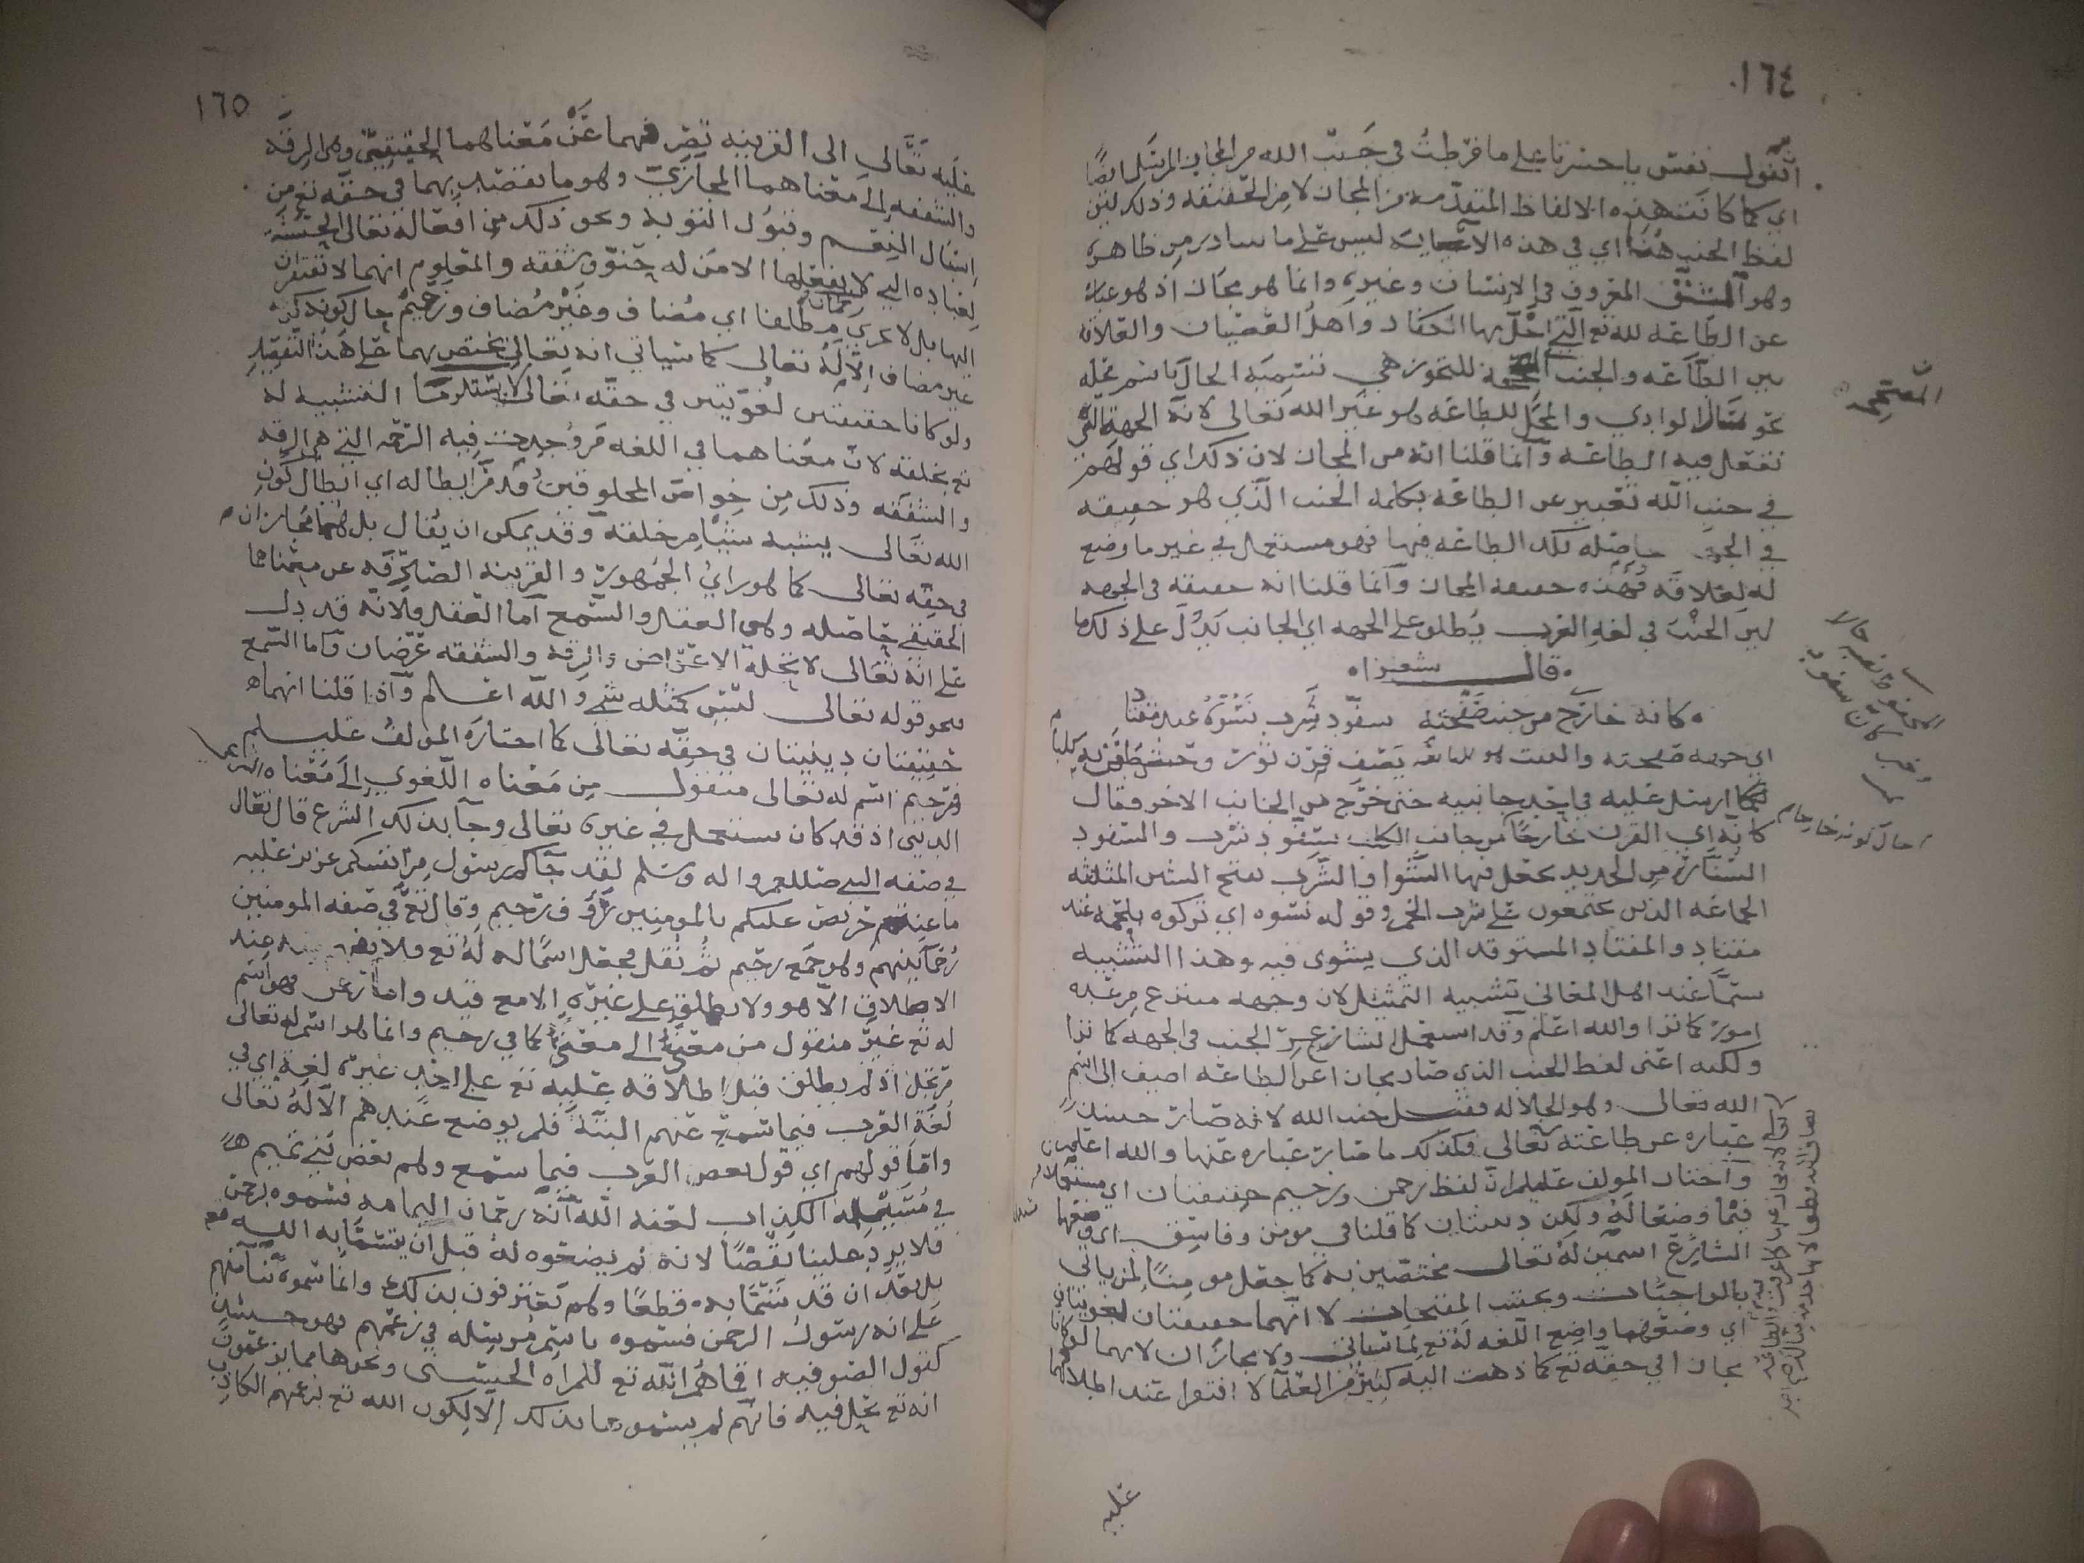 ١٦٤
ان تقول نفس يا حسرتا على ما فرطت في جنب الله من المجاز المرسل ايضًا
اي كما كانت هذه الالفاظ المتقدمة من المجاز لا من الحقيقة وذلك لان
لفظ الجنب هنا اي في هذه الآية ليس على ما يتبادر من ظاهره
وهو الشق المعروف في الانسان وغيره وانما هو مجاز اذ هو عبارة
عن الطاعة لله تع التي اخل بها الكفار واهل العصيان والعلاقة
بين الطاعة والجنب للتجوز هي تسمية الحال باسم محله
نحو سال الوادي والمحل للطاعة هو غير الله تعالى لانه الجهة التي
تفعل فيه الطاعة وانما قلنا انه من المجاز لان ذلك اي قولهم
في جنب الله تعبير عن الطاعة بكلمة الجنب الذي هو حقيقة
في الجهة حاصلة تلك الطاعة فيها فهو مستعمل في غير ما وضع
له لعلاقة فهذه حقيقة المجاز وانما قلنا انه حقيقة في الجهة
لان الجنب في لغة العرب يطلق على الجهة اي الجانب يدل على ذلك ما
قال شعرا
كانه خارج من جنب صفحته سفود شرب نسوه عند مفتاد
اي جهة صفحته والبيت للنابغة يصف قرن ثور وحشي
كلبا ارسل عليه في احد جانبيه حتى خرج من الجانب الاخر فقال
كانه اي القرن خارجًا من جانب الكلب سفود شرب والسفود
من الحديد يجعل فيها الشوا والشرب بفتح الشين المثلثة
الجماعة الذين يجتمعون على شرب الخمر وقوله نسوه اي تركوه بلحمه عند
مفتاد والمفتاد المستوقد الذي يشوى فيه وهذا التشبيه
يسمى عند اهل المعاني تشبيه التمثيل لان وجهه منتزع من عدة
امور كما ترا والله اعلم وقد استعمل الشاعر الجنب في الجهة كما ترا
ولكنه اعنى لفظ الجنب الذي صار مجازا عن الطاعة اضيف الى اسم
الله تعالى وهو الجلالة فقيل جنب الله لانه صار حينئذ
عبارة عن طاعته تعالى فكذلك ما صار عبارة عنها والله اعلم
واختار المؤلف عليلم ان لفظ رحمن ورحيم حقيقتان اي مستعملان
فيما وضعا له ولكن دينيتان كما قلنا في مومن وفاسق اي وضعهما
الشارع اسمين له تعالى مختصين به كما جعل مومنًا لمن ياتي
بالواجبات ويجتنب المقبحات لا انهما حقيقتان لغويتان
اي وضعهما واضع اللغة له تع لما سياتي ولا مجازان لانهما لو كانا
مجازا في حقه تع كما ذهبت اليه كثير من العلما لافتقرا عند اطلاقهما
عليه
المصحح
احال كونه خارجا
١٦٥
عليه تعالى الى القرينة تصرفهما عن معناهما الحقيقي وهو الرقة
والشفقة الى معناهما المجازي وهو ما يقصد بهما في حقه تع من
اسبال النعم وقبول التوبة ونحو ذلك من افعاله تعالى الحسنة
لعباده التي لا يفعلها الا من له حنو وشفقة والمعلوم انهما لا تفتقران
اليها بل لا يجري رحمان مطلقا اي مضاف وغير مضاف ورحيم حال كونه
غير مضاف الا له تعالى كما سياتي انه تعالى يختص بهما على هذا التقييد
ولو كانا حقيقتين لغويتين في حقه تعالى لاستلزما التشبيه له
تع بخلقه لان معناهما في اللغة من وجدت فيه الرحمة التي هي الرقة
والشفقة وذلك من خواص المخلوقين وقد مر ابطاله اي ابطال كون
الله تعالى يشبه شيئا من خلقه وقد يمكن ان يقال بل هما مجازان
في حقه تعالى كما هو راي الجمهور والقرينة الصارفة عن معناهما
الحقيقي حاصلة وهي العقل والسمع اما العقل فلانه قد دل
على انه تعالى لا تحله الاعراض والرقة والشفقة عرضان واما السمع
نحو قوله تعالى ليس كمثله شي والله اعلم واذا قلنا انهما
حقيقتان دينيتان في حقه تعالى كما اختاره المؤلف عليلم
فرحيم اسم له تعالى منقول من معناه اللغوي الى معناه
الديني اذ قد كان يستعمل في غيره تعالى وجا بذلك الشرع قال تعالى
في صفة النبي صلى الله عليه واله وسلم لقد جاكم رسول من انفسكم عزيز عليه
ما عنتم حريص عليكم بالمومنين رؤف رحيم وقال تع في صفة المومنين
رحما بينهم وهو جمع رحيم ثم نقل فجعل اسمًا له تع فلا يفهم عند
الاطلاق الا هو ولا يطلق على غيره الا مع قيد واما رحمن فهو اسم
له تع غير منقول من معنى الى معنى كما في رحيم وانما هو اسم له تعالى
مرتجل اذ لم يطلق قبل اطلاقه عليه تع على احد غيره لغة اي في
لغة العرب فيما سمع عنهم البتة فلم يوضع عندهم الا له تعالى
واما قولهم اي قول بعض العرب فيما سمع وهم بعض بني تميم
في مسيلمة الكذاب لعنه الله انه رحمان اليمامة فسموه رحمن
فلا يرد علينا نقضًا لانه لم يضعوه له قبل ان يتسمى به الله
بل بعد ان قد تسما به قطعًا وهم يعترفون بذلك وانما سموه بنا منهم
على انه رسول الرحمن فسموه باسم مرسله في زعمهم فهو حينئذ
كقول الصوفية للمراة الحسنى ونحوها مما يزعمون
انه تع يحل فيه فانهم لم يسموها بذلك الا لكون الله تع بزعمهم الكاذب